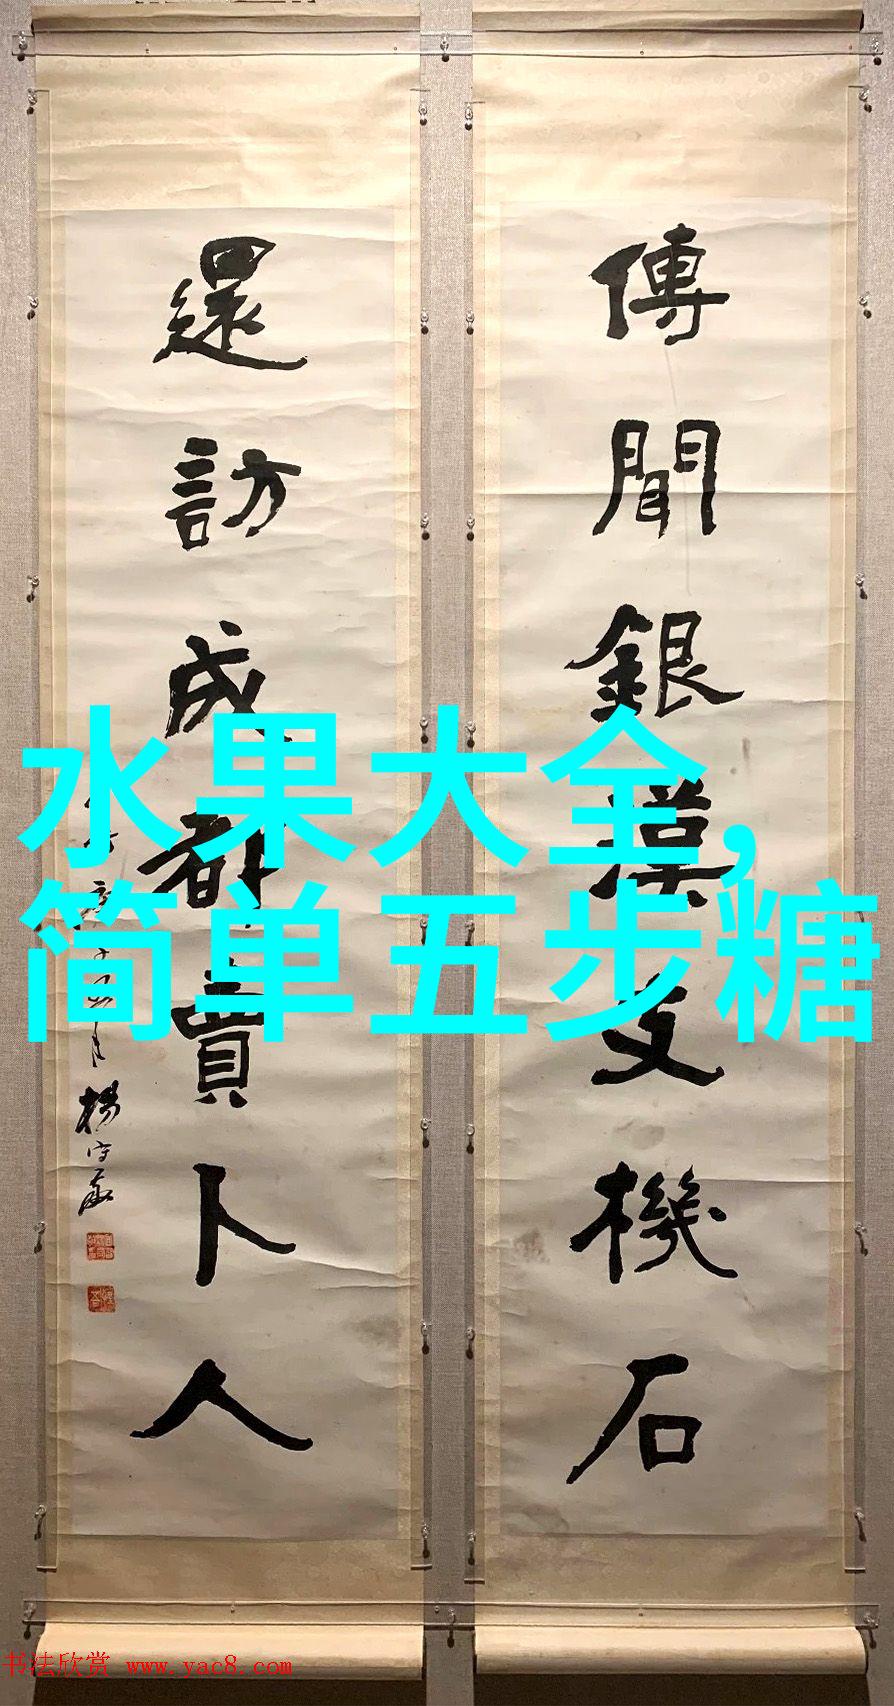 傳聞銀漢支機石
還訪成都賣卜人
庚子四月
楊守敬
水果大全,
简单五步糖
书法欣赏 www.yac8.com